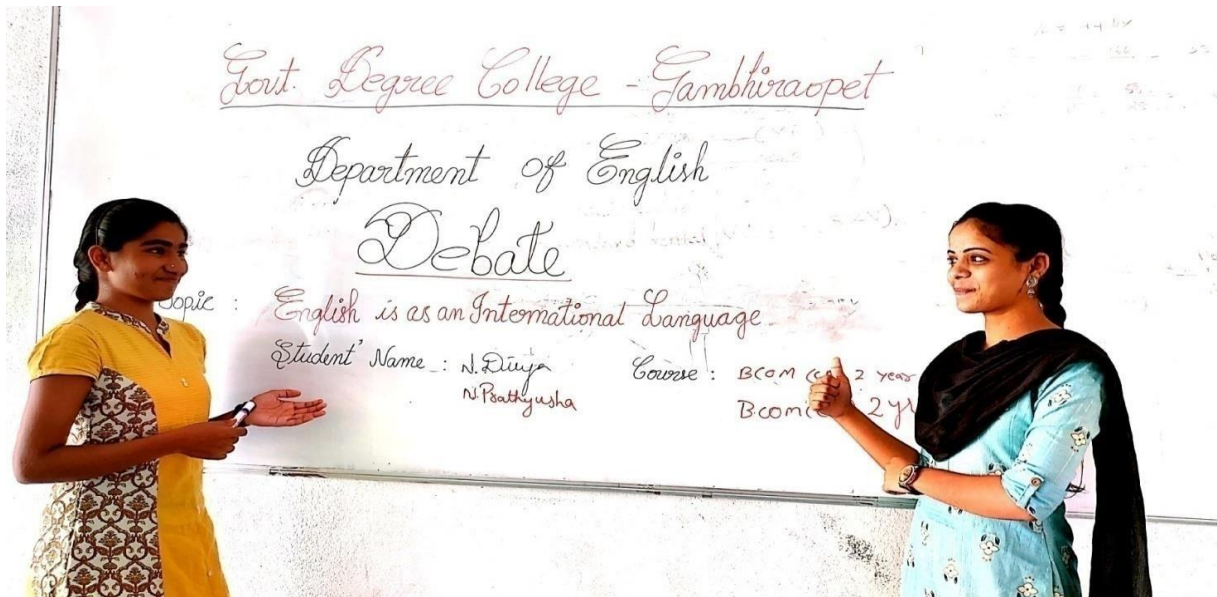 Govt. Degree College - Gambhiraopet
Department of English
Debate
Topic : English is as an International Language
Student' Name : N. Divya Course : BCOM 2 year
N. Prathyusha Bcom 2 yr